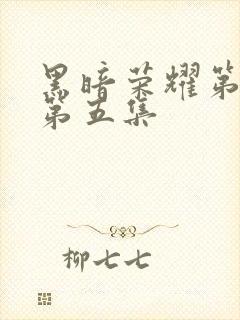 黑暗荣耀第
第五集
柳七七